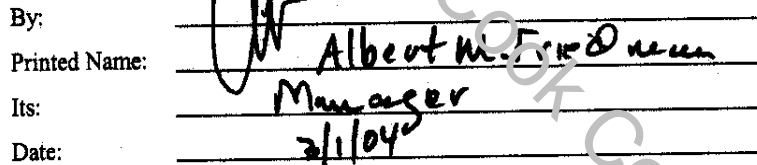 By:
Printed Name: Albert M. Friedman
Its: Manager
Date: 3/1/04
Cook Co